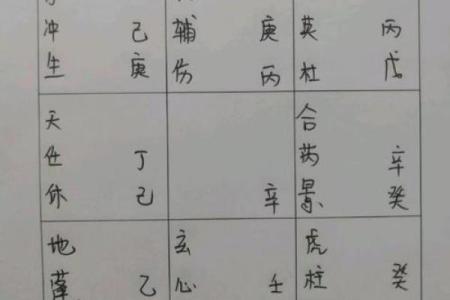 冲 己 辅 庚 英 丙
生 庚 伤 丙 杜 戊
天 合
任 丁 芮 辛
休 己 辛 景 癸
地 玄 虎
蓬 乙 心 壬 柱 癸